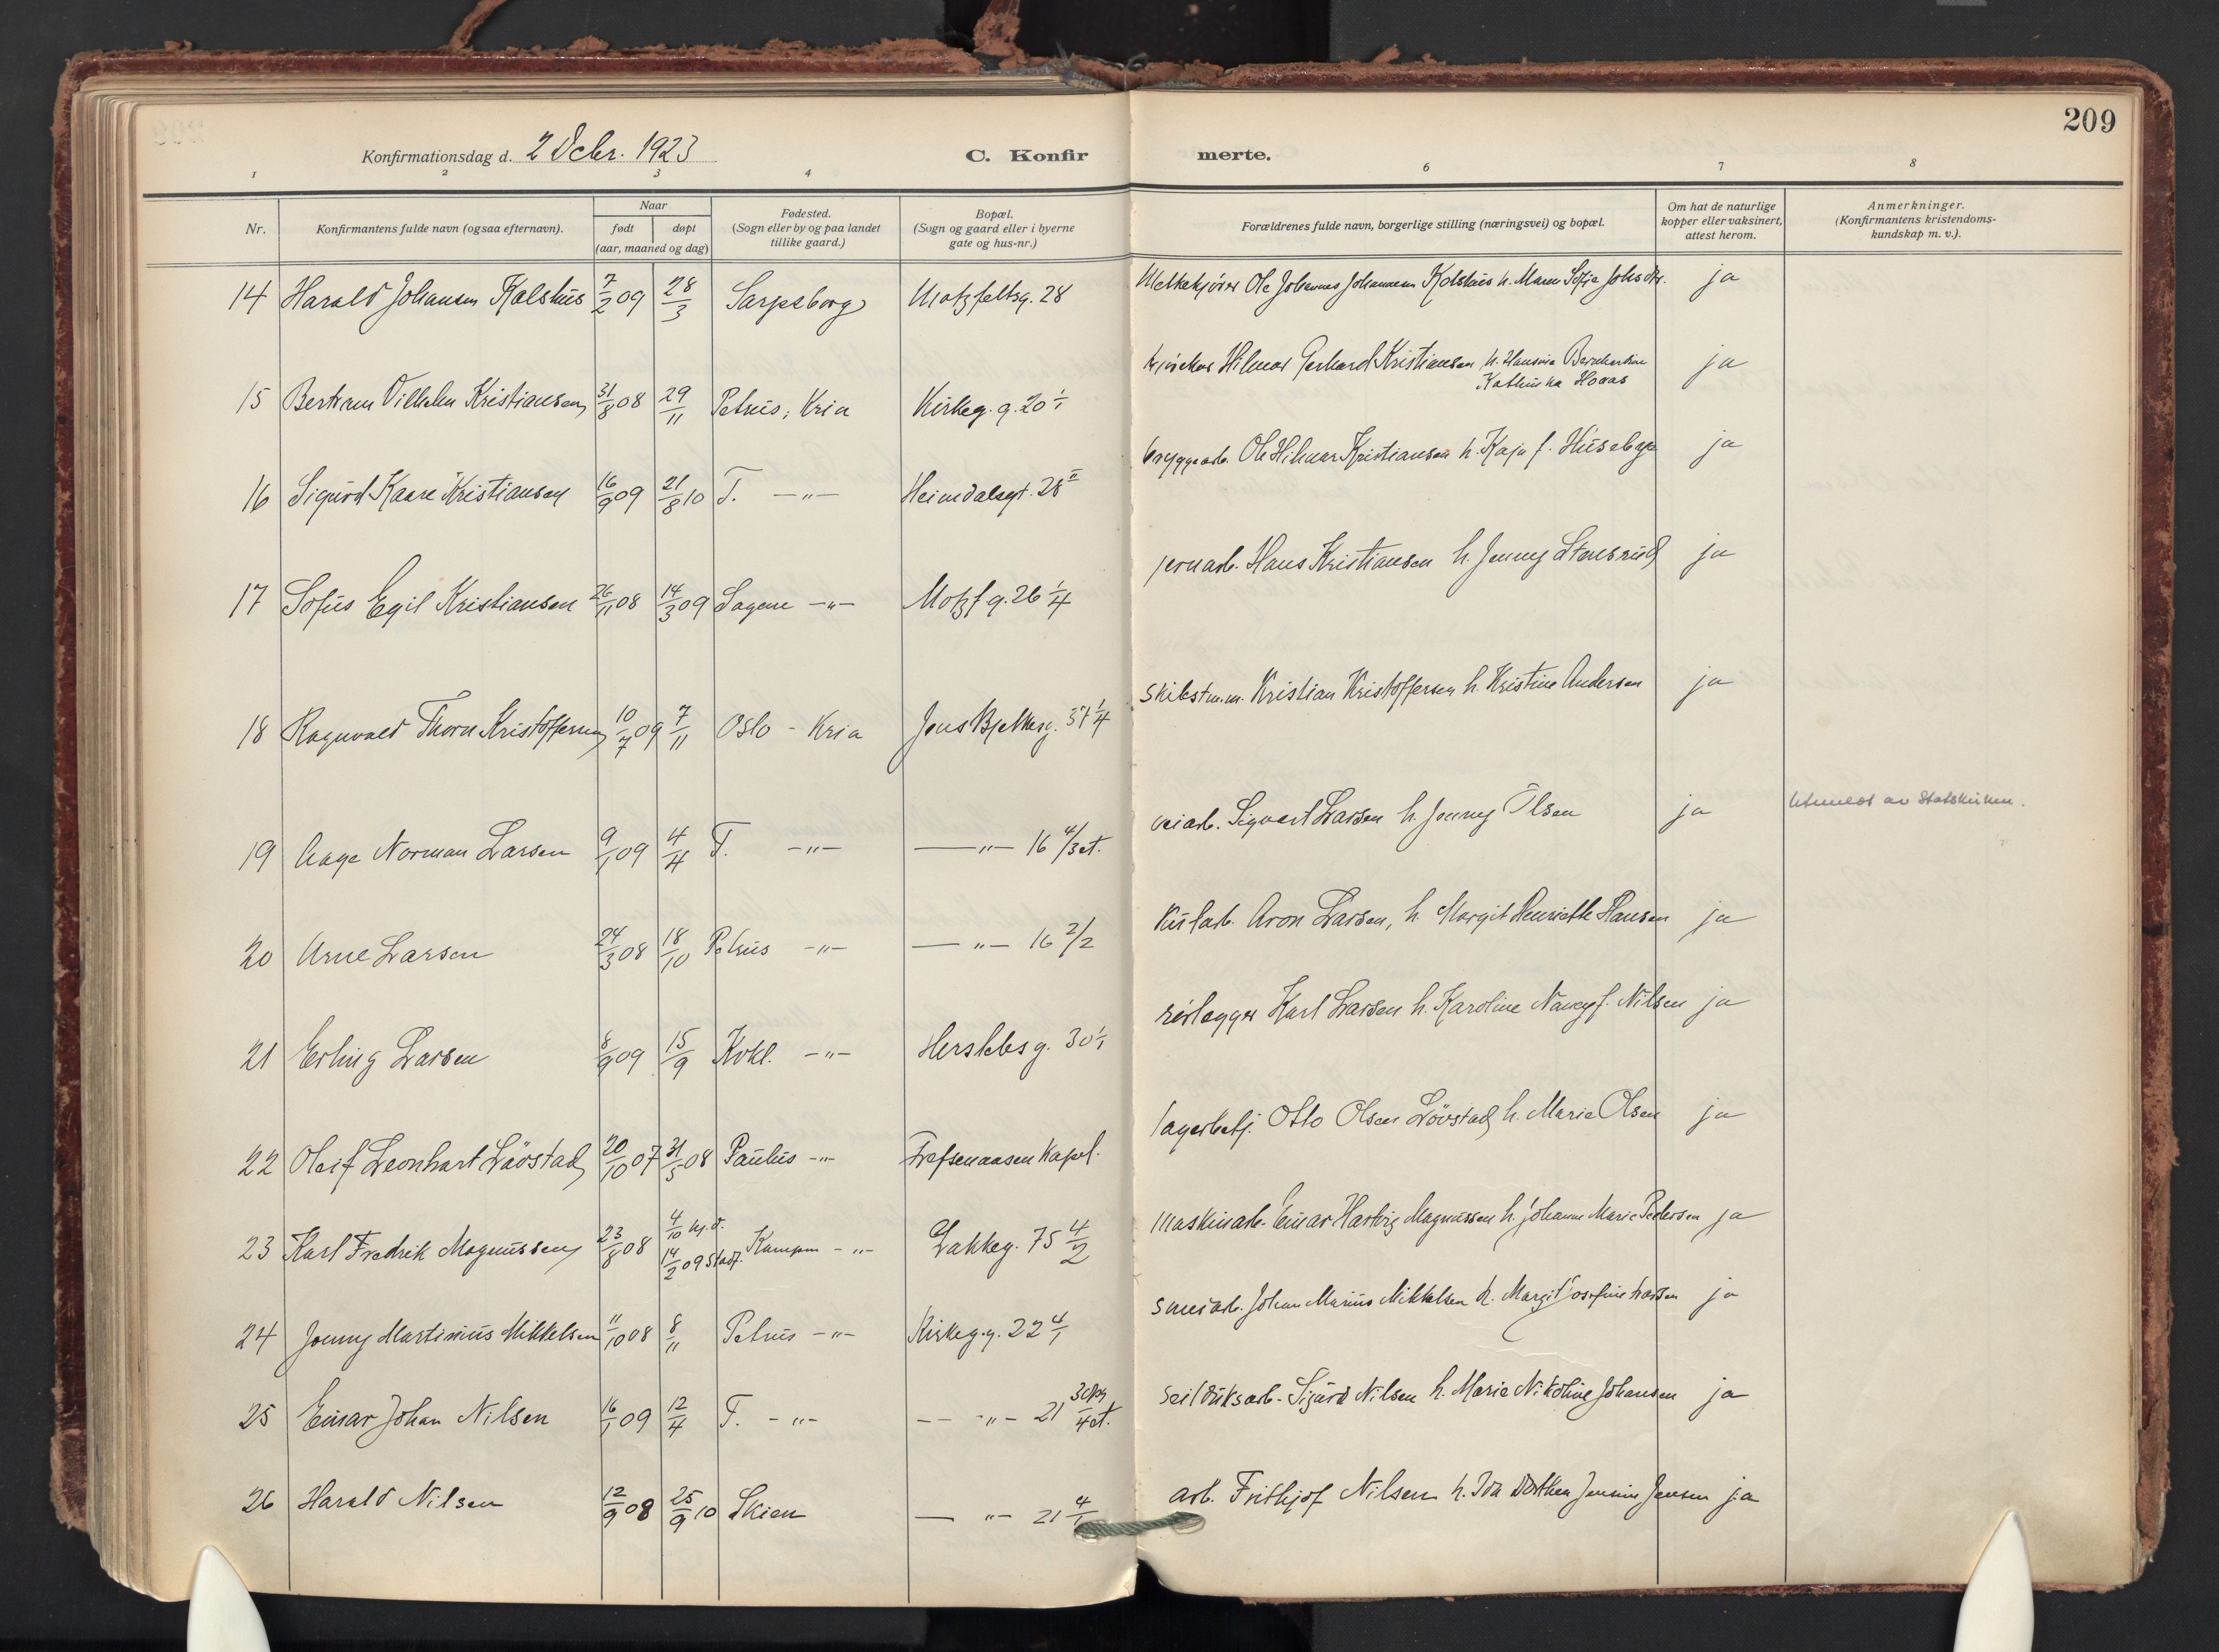 209
Konfirmationsdag d. 2 Decbr. 1923
C. Konfirmerte.
1 2 3 4 6 7 8
Nr.
Konfirmantens fulde navn (ogsaa efternavn).
Naar
født
døpt
(aar, maaned og dag)
Fødested.
(Sogn eller by og paa landet
tillike gaard.)
Bopæl.
(Sogn og gaard eller i byerne
gate og hus-nr.)
Forældrenes fulde navn, borgerlige stilling (næringsvei) og bopæl.
Om hat de naturlige
kopper eller vaksinert,
attest herom.
Anmerkninger.
(Konfirmantens kristendoms-
kundskap m. v.).
14 Harald Johansen Kolshus 7/2 09 28/3 Sarpsborg Motzfeltsg. 28 Melkekjører Ole Johannes Johannesen Kolshus h. Maren Sofie Johsdtr. ja
15 Bertram Vilhelm Kristiansen 31/8 08 29/11 Petrus, Kria Kirkeg. g. 20 1/1 Hilmar Gerhard Kristiansen h. Hansine Bernhardine
Kathinka Hovas ja
16 Sigurd Kaare Kristiansen 16/9 09 21/8 10 T. -"- Heimdalsgt. 28 II bryggearb. Ole Hilmar Kristiansen h. Kaja f. Huseby ja
17 Sofus Egil Kristiansen 26/11 08 14/3 09 Sagene -"- Motzf. g. 26 1/4 jernarb. Hans Kristiansen h. Jenny Stensrud ja
18 Ragnvald Thorn Kristoffersen 10/7 09 7/11 Oslo - Kria Jens Bjelkesg. 37 1/4 Skibstm.m. Kristian Kristoffersen h. Kristine Andersen ja
19 Aage Norman Larsen 9/1 09 4/4 T. -"- -"- 16 4/3 et. veiarb. Sigvart Larsen h. Jenny Olsen ja Utmeldt av Statskirken.
20 Arne Larsen 24/3 08 18/10 Petrus -"- -"- 16 2/2 Kularb. Aron Larsen, h. Margit Henriette Hansen ja
21 Erling Larsen 8/9 09 15/9 Kvkl. -"- Herslebs g. 30 1/1 rørlegger Karl Larsen h. Karoline Nancy f. Nilsen ja
22 Oleif Leonhart Løvstad 20/10 07 31/5 08 Paulus -"- Grefsenaasen Kapel. lagerbetj. Otto Olsen Løvstad h. Marie Olsen ja
23 Karl Fredrik Magnussen 23/8 08 4/10 hj.d. 14/2 09 stadf. Kampen -"- Lakkeg. 75 4/2 Maskinarb. Einar Hartvig Magnussen h. Johanne Marie Pedersen ja
24 Jonny Martinius Mikkelsen 11/10 08 8/11 Petrus -"- Kirkeg. g. 22 4/1 smedarb. Johan Marius Mikkelsen h. Margit Josefine Larsen ja
25 Einar Johan Nilsen 16/1 09 12/4 T. -"- -"- 21 3 opg/4 et. Seilduksarb. Sigurd Nilsen h. Marie Nikoline Johansen ja
26 Harald Nilsen 12/9 08 25/9 10 Skien -"- 21 4/1 arb. Frithjof Nilsen h. Ida Dorthea Jensine Jensen ja